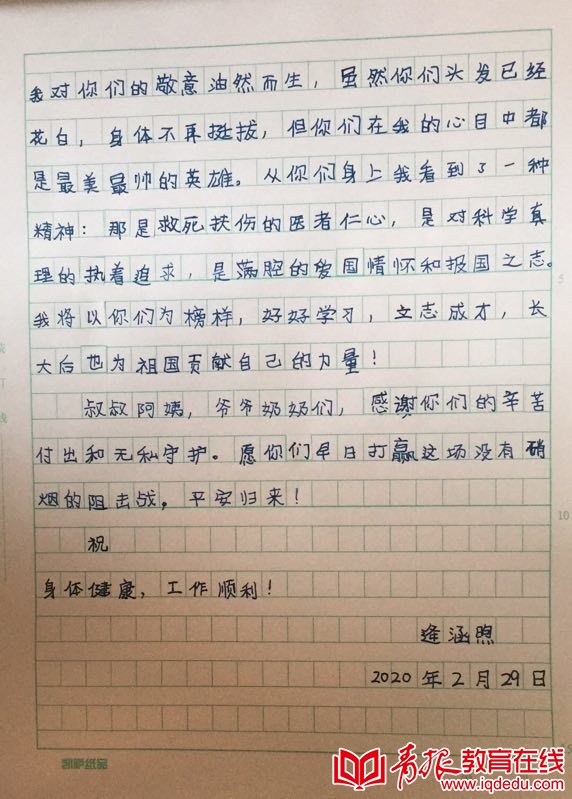 我对你们的敬意油然而生，虽然你们头发已经
花白，身体不再挺拔，但你们在我的心目中都
是最美最帅的英雄。从你们身上我看到了一种
精神：那是救死扶伤的医者仁心，是对科学真
理的执着追求，是满腔的爱国情怀和报国之志。
5
我将以你们为榜样，好好学习，立志成才，长
大后也为祖国贡献自己的力量！
叔叔阿姨，爷爷奶奶们，感谢你们的辛苦
付出和无私守护。愿你们早日打赢这场没有硝
烟的阻击战。平安归来！
10
祝
身体健康，工作顺利！
逄涵煦
2020年2月29日
凯萨纸品
青报教育在线
www.iqdedu.com